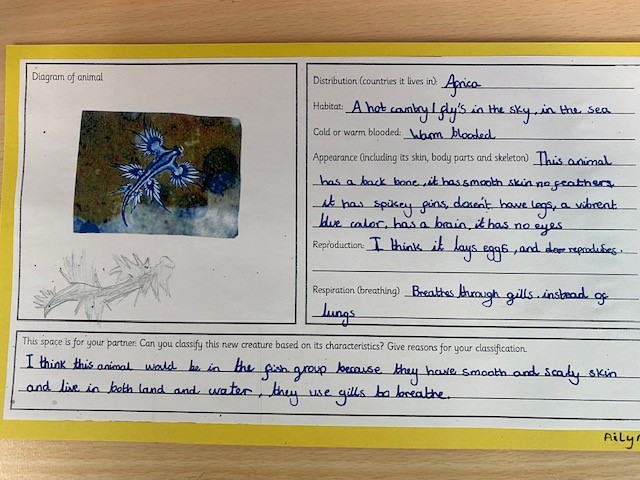 Diagram of animal
Distribution (countries it lives in): Africa
Habitat: A hot cantry / fly's in the sky, in the sea
Cold or warm blooded: Warm blooded
Appearance (including its skin, body parts and skeleton) This animal
has a back bone, it has smooth skin no feathers
it has spikey fins, doesn't have legs, a vibrent
blue color, has a brain, it has no eyes
Reproduction: I think it lays eggs, and reproduses.
Respiration (breathing) Breathes through gills instead of
lungs
This space is for your partner: Can you classify this new creature based on its characteristics? Give reasons for your classification.
I think this animal would be in the fish group because they have smooth and scaly skin
and live in both land and water, they use gills to breathe.